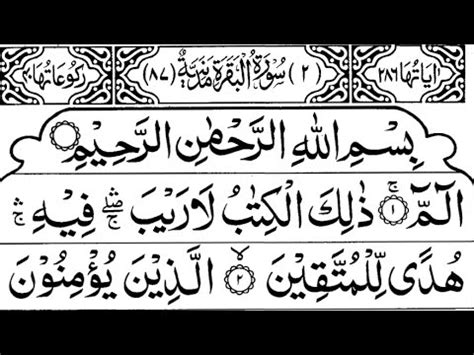 اٰيَاتُهَا ٢٨٦ (٢) سُوْرَةُ الْبَقَرَةِ مَدَنِيَّةٌ (٨٧) رُكُوْعَاتُهَا ٤٠
بِسْمِ اللّٰهِ الرَّحْمٰنِ الرَّحِيْمِ
الٓمّٓ ۚ ١ ذٰلِكَ الْكِتٰبُ لَا رَيْبَ ۛۖ فِيْهِ ۛ
هُدًى لِّلْمُتَّقِيْنَ ۙ ٢ الَّذِيْنَ يُؤْمِنُوْنَ